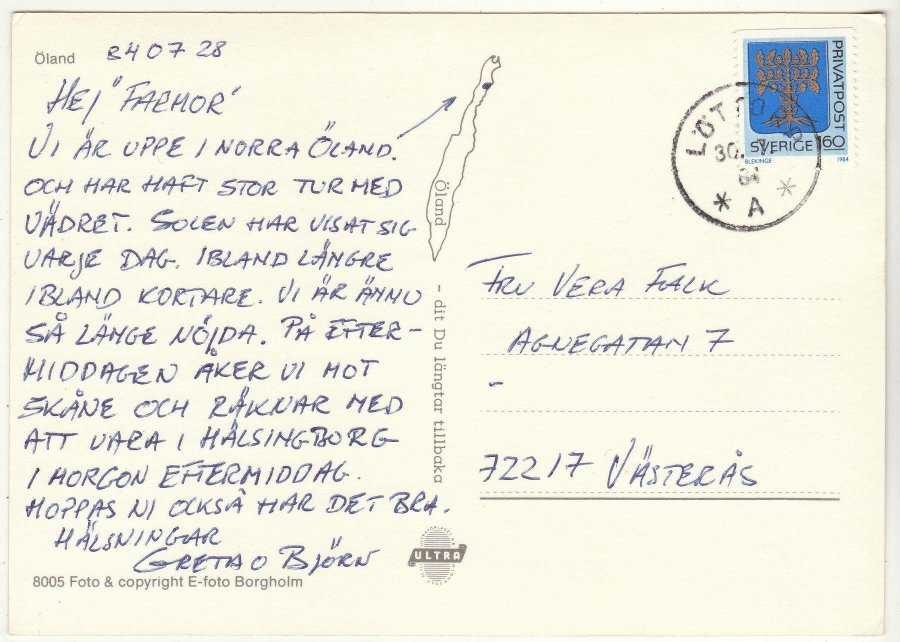 Öland
84 07 28
HEJ "FARMOR"
VI ÄR UPPE I NORRA ÖLAND.
OCH HAR HAFT STOR TUR MED
VÄDRET. SOLEN HAR VISAT SIG
VARJE DAG. IBLAND LÄNGRE
IBLAND KORTARE. VI ÄR ÄNNU
SÅ LÄNGE NÖJDA. PÅ EFTER-
MIDDAGEN ÅKER VI MOT
SKÅNE OCH RÄKNAR MED
ATT VARA I HÄLSINGBORG
I MORGON EFTERMIDDAG.
HOPPAS NI OCKSÅ HAR DET BRA.
HÄLSNINGAR
GRETA O BJÖRN
8005 Foto & copyright E-foto Borgholm
Öland
- dit Du längtar tillbaka
ULTRA
PRIVATPOST
SVERIGE 160
BLEKINGE 1984
LÖT
30. 7.
84
* A *
FRU VERA FALK
AGNEGATAN 7
-
722 17 VÄSTERÅS